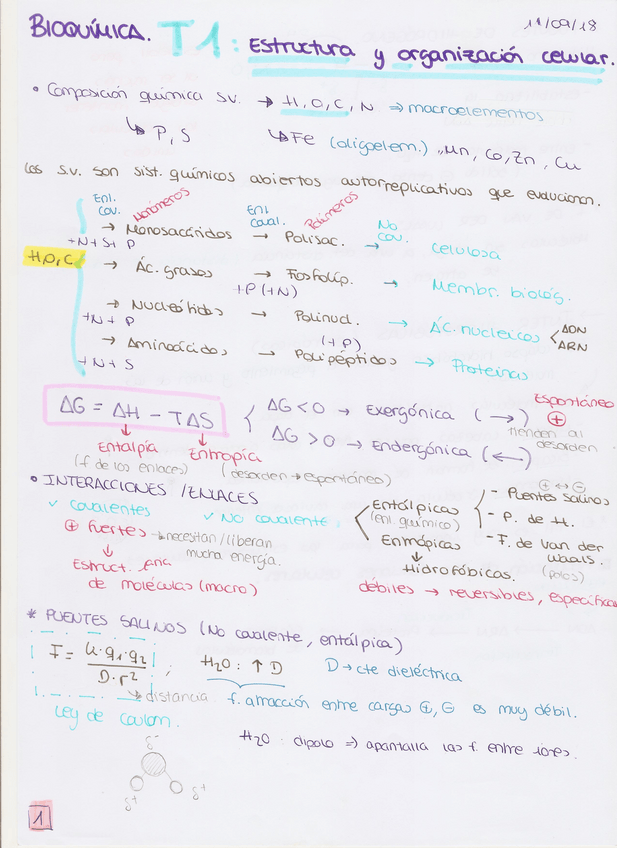 11/09/18
BIOQUÍMICA. T1: Estructura y organización celular.
• Composición química s.v. → H, O, C, N ⇒ macroelementos
↳ P, S ↳ Fe (oligoelem.) , Mn, Co, Zn, Cu
Los s.v. son sist. químicos abiertos autorreplicativos que evolucionan.
Enl. cov. Monómeros Enl. coval. Polímeros No cov.
→ Monosacáridos → Polisac. → Celulosa
+N+S+ P
H,O,C → Ác. grasos → Fosfolíp. → Membr. biológ.
+P (+N)
→ Nucleótidos → Polinucl. → Ác. nucleicos < ADN ARN
+N + P (+P)
→ Aminoácidos → Polipéptidos → Proteínas
+N + S
ΔG = ΔH - TΔS
ΔG < 0 → Exergónica (→) Espontáneo ⊕
ΔG > 0 → Endergónica (←) tienden al desorden
Entalpía Entropía
(f de los enlaces) (desorden → espontáneo)
• INTERACCIONES / ENLACES
✓ Covalentes ✓ No covalente:
⊕ fuertes → necesitan/liberan mucha energía.
↓
Estruct. 1aria
de moléculas (macro)
Entálpicas (enl. químico)
⊕ ↔ ⊖
- Puentes salinos
- P. de H.
- F. de Van der Waals.
(polos)
Entrópicas
↓
Hidrofóbicas.
débiles → reversibles, específicas
* PUENTES SALINOS (No covalente, entálpica)
F = K·q1·q2 / D·r² ; H2O: ↑ D D → cte dieléctrica
↳ distancia f. atracción entre cargas ⊕, ⊖ es muy débil.
Ley de Coulom.
H2O: dipolo ⇒ apantalla las f. entre iones.
δ-
δ+ δ+
1